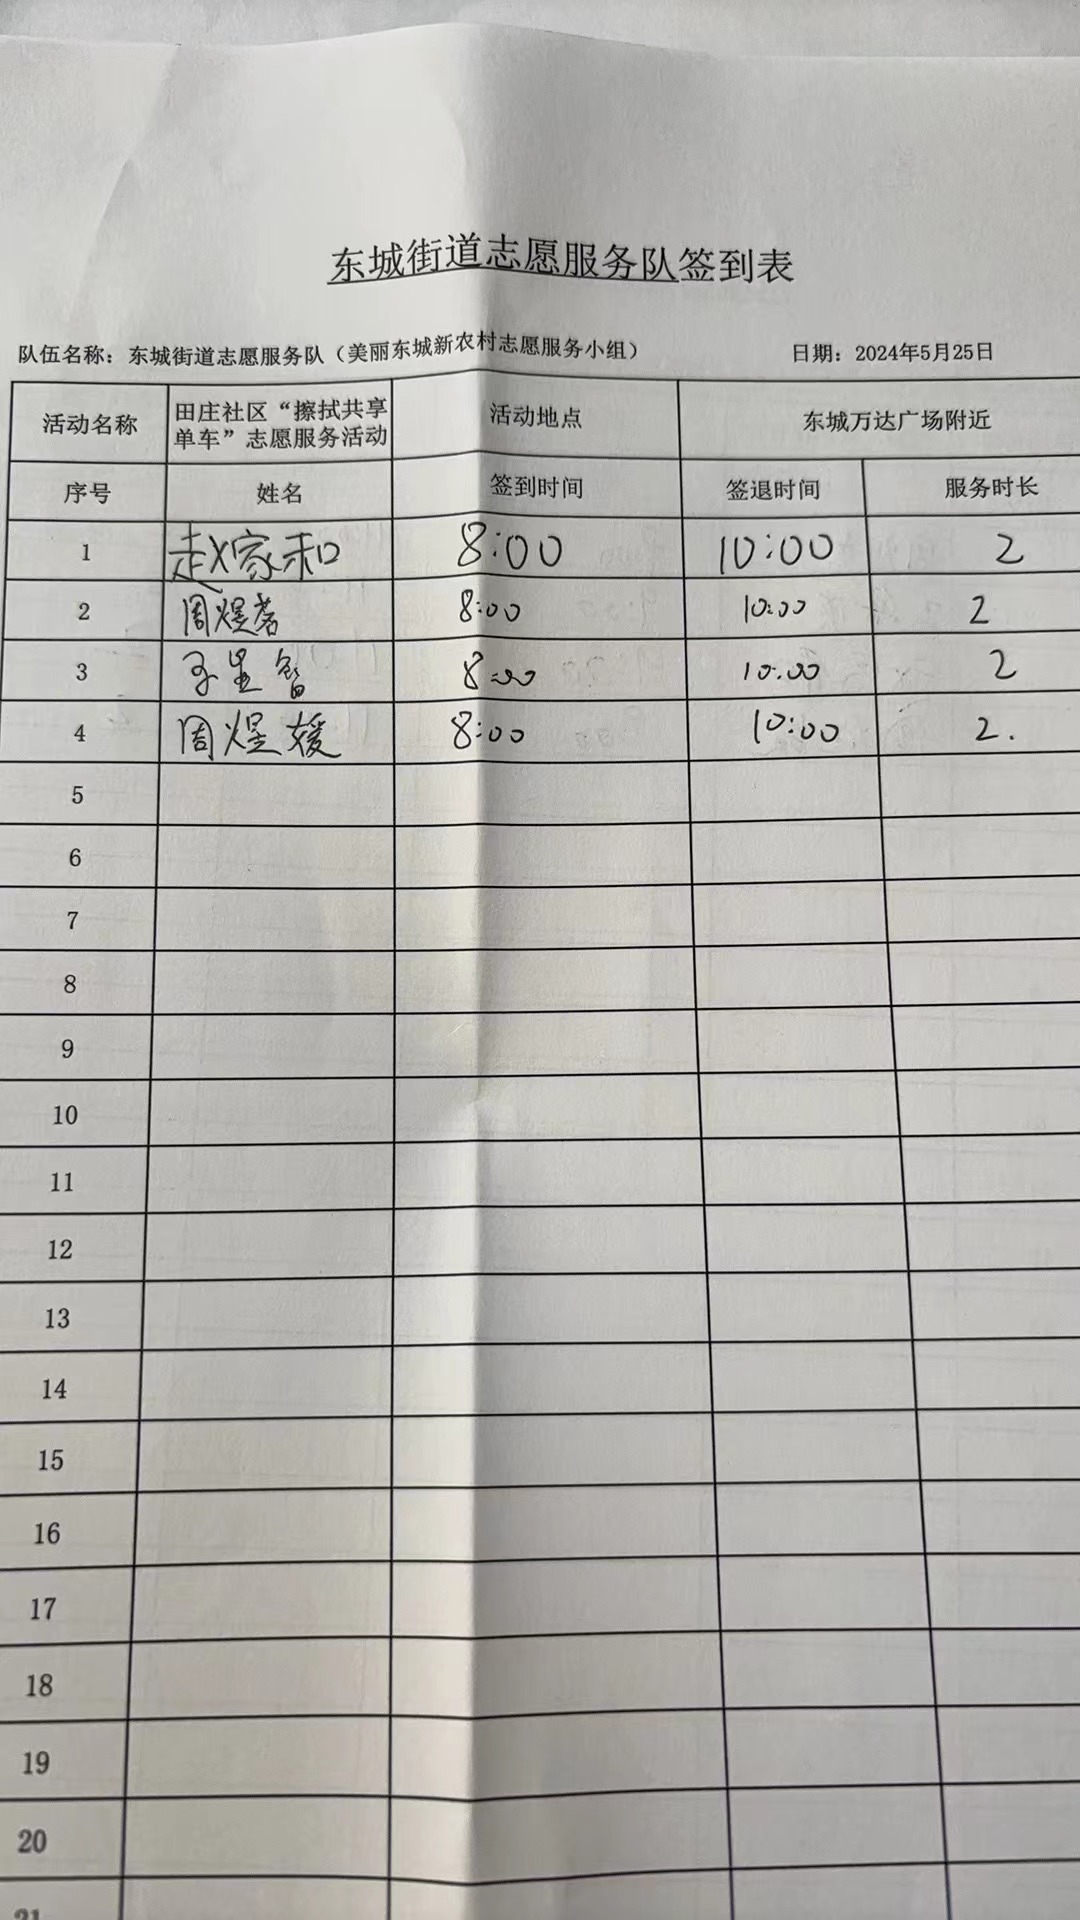 东城街道志愿服务队签到表
队伍名称：东城街道志愿服务队（美丽东城新农村志愿服务小组） 日期：2024年5月25日
活动名称 田庄社区“擦拭共享单车”志愿服务活动 活动地点 东城万达广场附近
序号 姓名 签到时间 签退时间 服务时长
1 赵家和 8:00 10:00 2
2 周煜 8:00 10:00 2
3 星智 8:00 10:00 2
4 周煜媛 8:00 10:00 2.
5
6
7
8
9
10
11
12
13
14
15
16
17
18
19
20
21